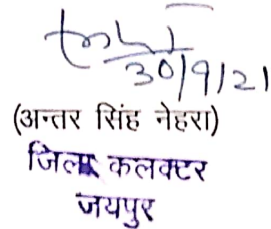 30/9/21
(अन्तर सिंह नेहरा)
जिला कलक्टर
जयपुर